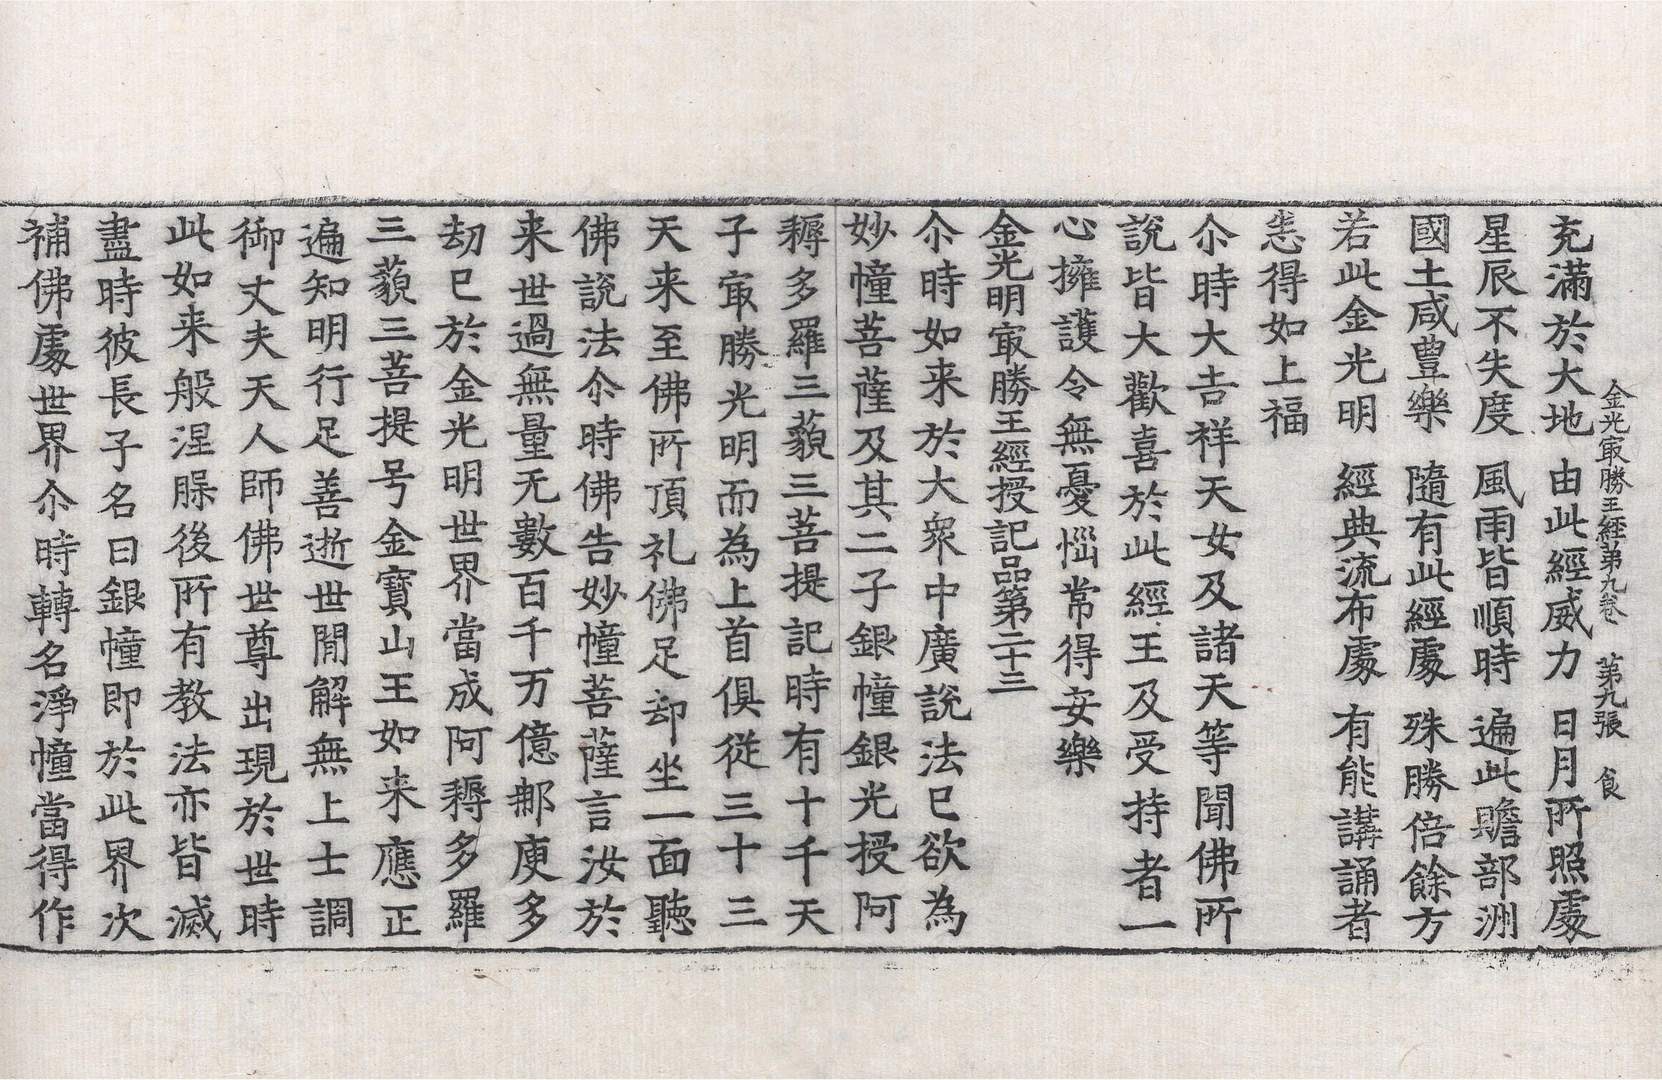 金光㝡勝王經第九卷　第九張　食
充滿於大地　由此經威力　日月所照處
星辰不失度　風雨皆順時　遍此贍部洲
國土咸豊樂　隨有此經處　殊勝倍餘方
若此金光明　經典流布處　有能講誦者
悉得如上福
尒時大吉祥天女及諸天等聞佛所
說皆大歡喜於此經王及受持者一
心擁護令無憂惱常得安樂
金光明㝡勝王經授記品第二十三
尒時如来於大衆中廣說法已欲為
妙幢菩薩及其二子銀幢銀光授阿
耨多羅三藐三菩提記時有十千天
子㝡勝光明而為上首俱從三十三
天来至佛所頂礼佛足却坐一面聽
佛說法尒時佛告妙幢菩薩言汝於
来世過無量无數百千万億那庾多
劫已於金光明世界當成阿耨多羅
三藐三菩提号金寶山王如来應正
遍知明行足善逝世間解無上士調
御丈夫天人師佛世尊出現於世時
此如来般涅槃後所有教法亦皆滅
盡時彼長子名曰銀幢即於此界次
補佛處世界尒時轉名淨幢當得作